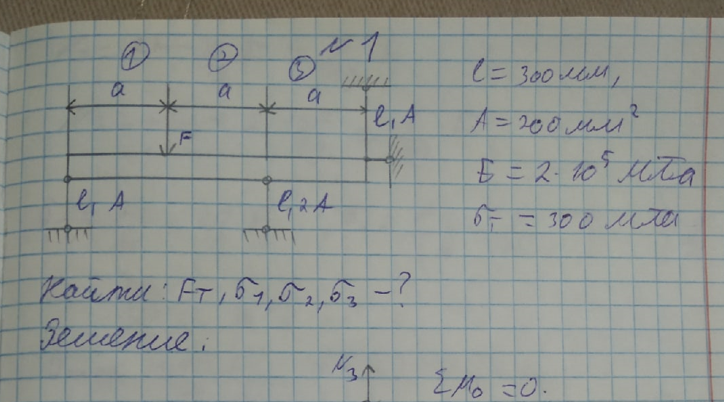 N 1
① ② ③
a a a
F
l, A
l, A l, 2A
l = 300 мм,
A = 200 мм²
E = 2·10⁵ МПа
σт = 300 МПа
Найти: Fт, σ1, σ2, σ3 - ?
Решение:
N3 ΣM0 = 0.